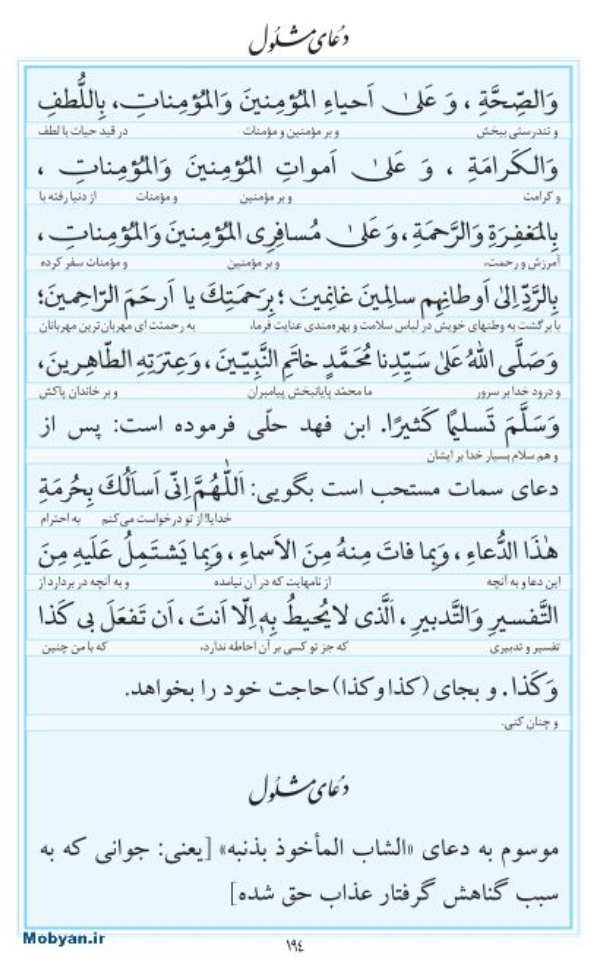 دعای مشلول
وَالصِّحَّةِ ، وَ عَلیٰ اَحیاءِ المُؤمِنینَ وَالمُؤمِناتِ، بِاللُّطفِ
و تندرستی ببخش و بر مؤمنین و مؤمنات در قید حیات با لطف
وَالکَرامَةِ ، وَ عَلیٰ اَمواتِ المُؤمِنینَ وَالمُؤمِناتِ ،
و کرامت و بر مؤمنین و مؤمنات از دنیا رفته با
بِالمَغفِرَةِ وَالرَّحمَةِ ، وَ عَلیٰ مُسافِرِی المُؤمِنینَ وَالمُؤمِناتِ ،
آمرزش و رحمت، و بر مؤمنین و مؤمنات سفر کرده
بِالرَّدِّ اِلیٰ اَوطانِهِم سالِمینَ غانِمینَ ؛ بِرَحمَتِكَ یا اَرحَمَ الرّاحِمینَ؛
با برگشت به وطنهای خویش در لباس سلامت و بهره‌مندی عنایت فرما، به رحمتت ای مهربان‌ترین مهربانان
وَصَلَّی اللهُ عَلیٰ سَیِّدِنا مُحَمَّدٍ خاتَمِ النَّبِیّینَ ، وَعِترَتِهِ الطّاهِرینَ،
و درود خدا بر سرور ما محمّد پایانبخش پیامبران و بر خاندان پاکش
وَسَلَّمَ تَسلیمًا کَثیرًا. ابن فهد حلّی فرموده است: پس از
و هم سلام بسیار خدا بر ایشان
دعای سمات مستحب است بگویی: اَللّٰهُمَّ اِنّی اَسأَلُكَ بِحُرمَةِ
خدایا! از تو درخواست می‌کنم به احترام
هٰذَا الدُّعاءِ ، وَبِما فاتَ مِنهُ مِنَ الاَسماءِ ، وَبِما یَشتَمِلُ عَلَیهِ مِنَ
این دعا و به آنچه از نامهایت که در آن نیامده و به آنچه در بردارد از
التَّفسیرِ وَالتَّدبیرِ ، اَلَّذی لایُحیطُ بِهٖ اِلّا اَنتَ ، اَن تَفعَلَ بی کَذا
تفسیر و تدبیری که جز تو کسی بر آن احاطه ندارد، که با من چنین
وَکَذا. و بجای (کذا و کذا) حاجت خود را بخواهد.
و چنان کنی.
دعای مشلول
موسوم به دعای «الشاب المأخوذ بذنبه» [یعنی: جوانی که به
سبب گناهش گرفتار عذاب حق شده]
Mobyan.ir
١٩٤